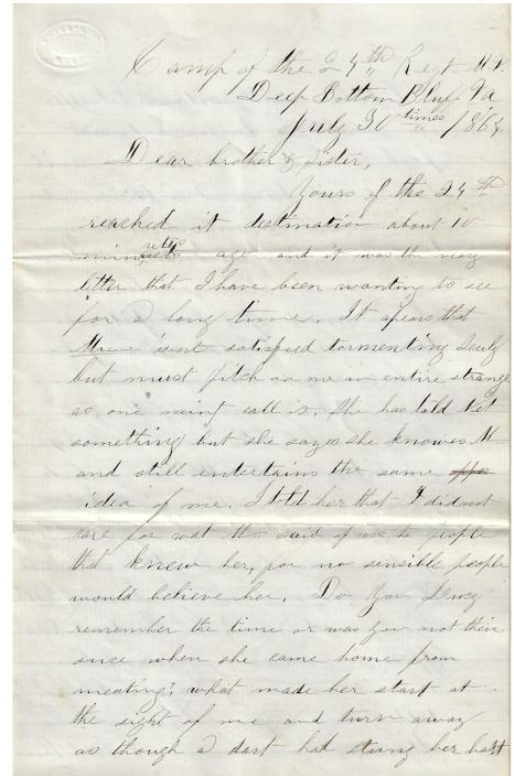 Camp of the 24th Regt M.V.
Deep Bottom Bluff Va
July 30 times 1864
Dear brother & sister,
Yours of the 24th
reached it destination about 10
minutes ago and it was the very
letter that I have been wanting to see
for a long time. It apears that
isent satisfied tormenting
but must pitch on me an entire strange
as one mint call is. She has told Net
something but she sayes she knowes M
and still entertains the same
idea of me. I told her that I did not
care for wat said of me to people
that knew her, for no sensible people
would believe her. Do you Lucy
remember the time or was you not their
once when she came home from
meating; what made her start at
the sight of me and turn away
as though a dart had stung her hart